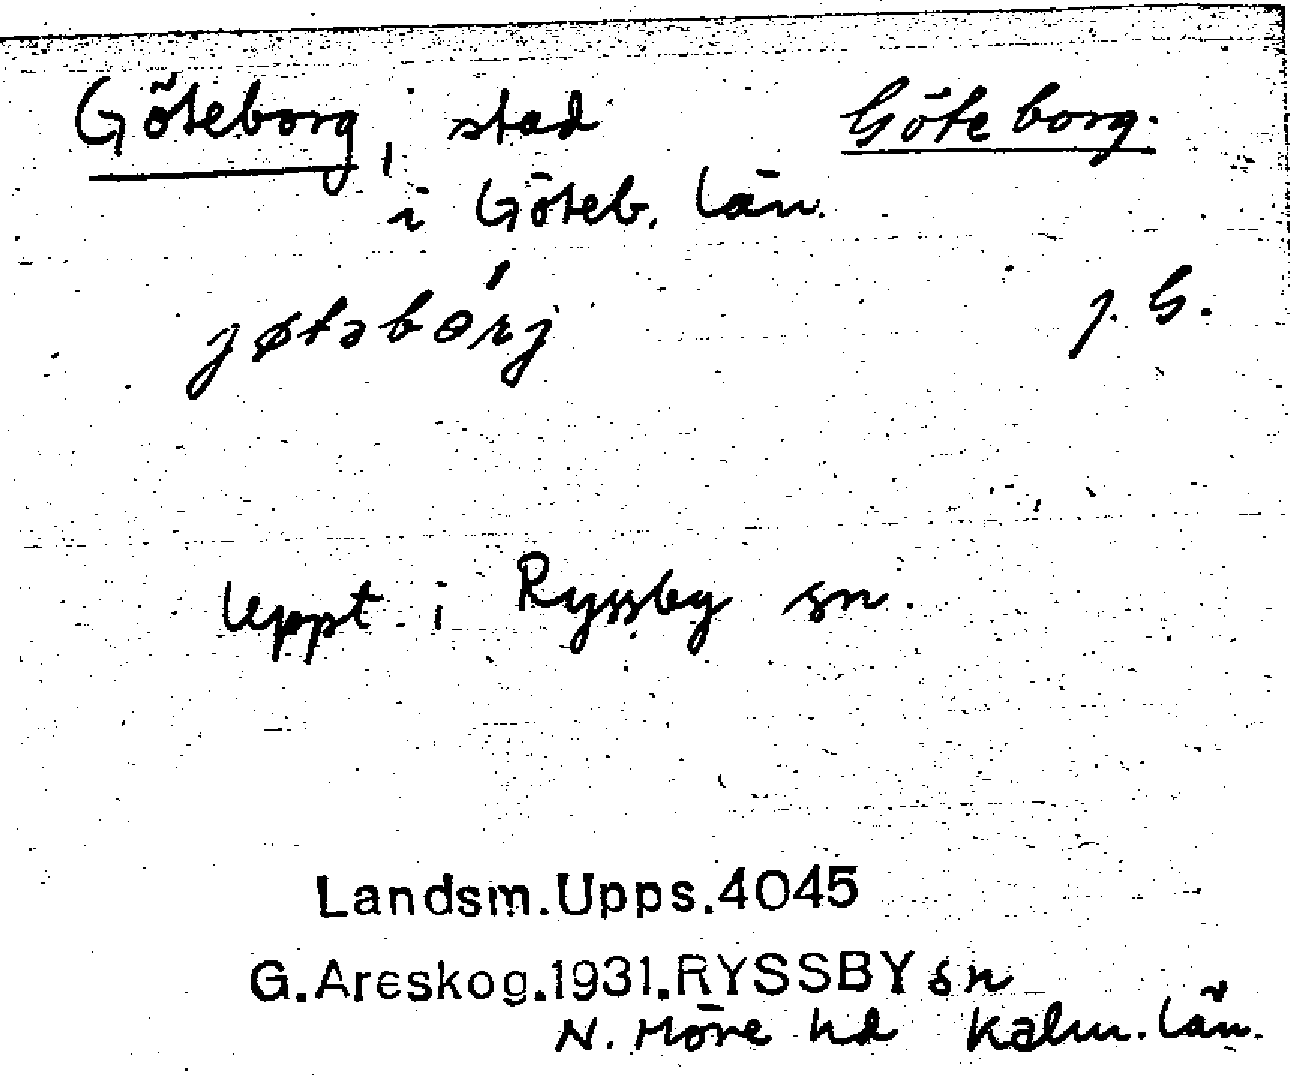 Göteborg, stad Göteborg.
i Göteb. län.
jøtəbórj j. G.
Uppt i Ryssby sn.
Landsm.Upps.4045
G.Areskog.1931.RYSSBY sn
N. Möre hd Kalm. län.